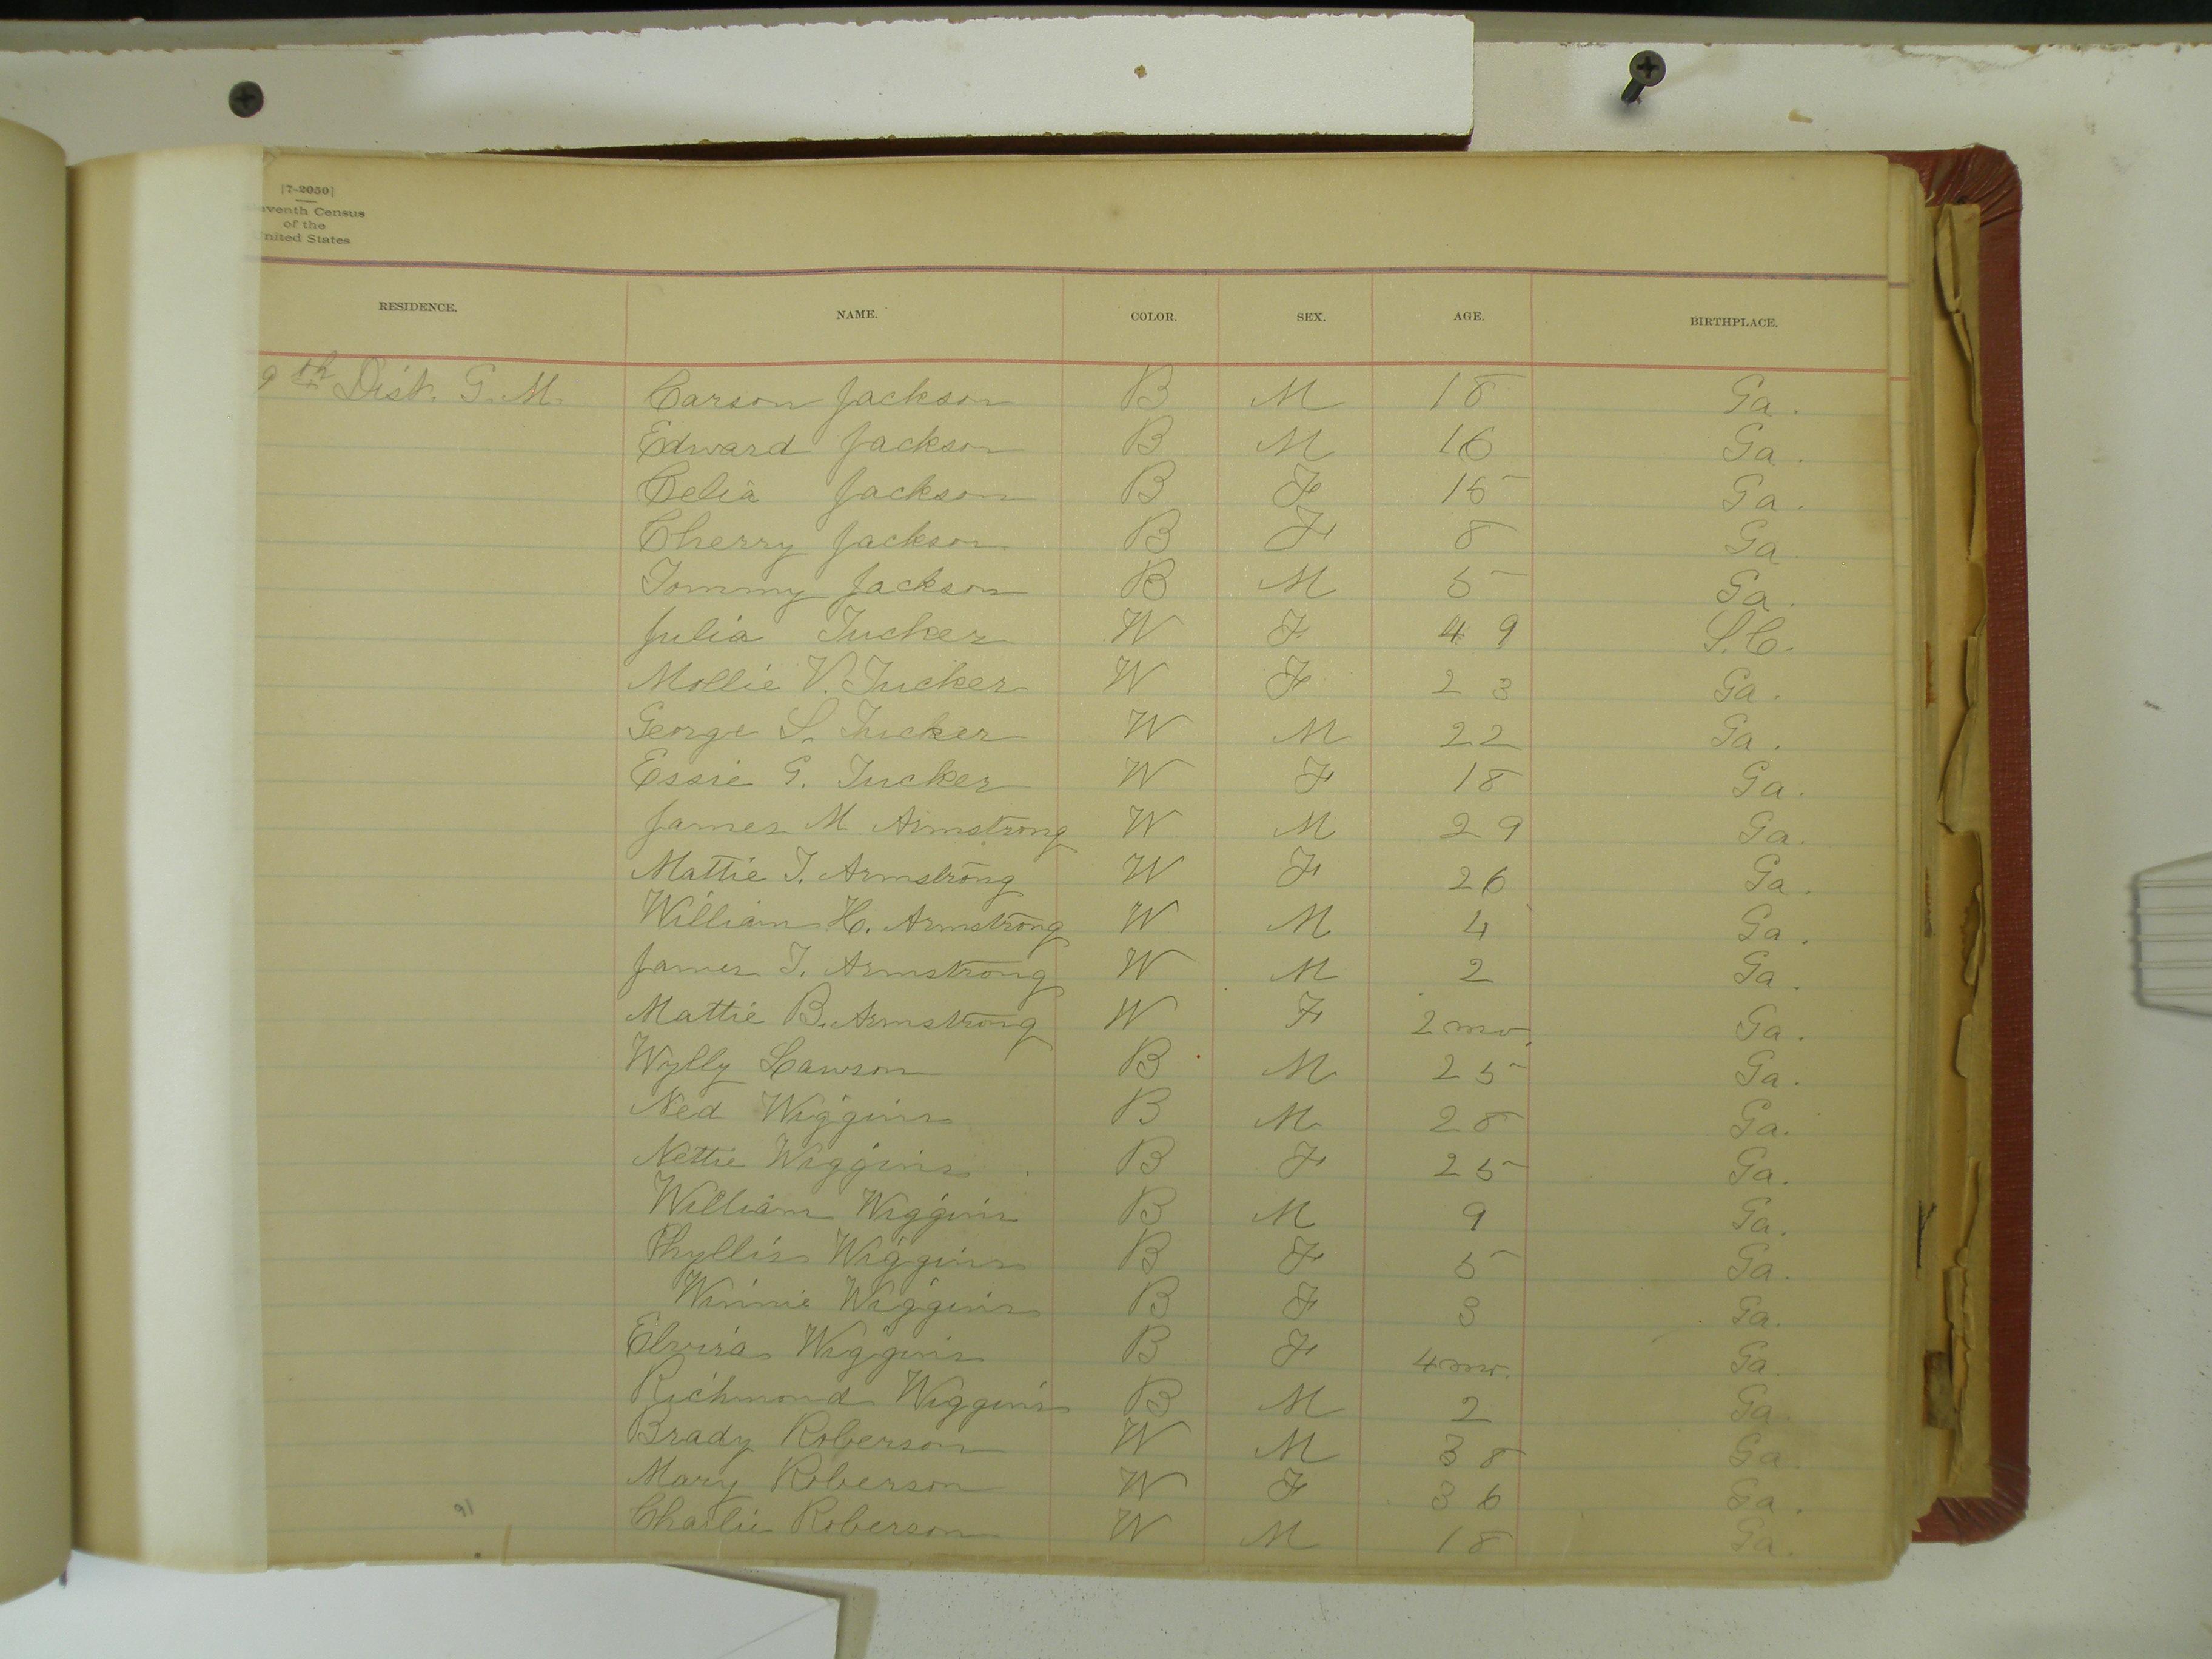 [7-2050]
eventh Census
of the
United States
RESIDENCE. NAME. COLOR. SEX. AGE. BIRTHPLACE.
9th Dist. G. M. Carson Jackson B M 18 Ga.
Edward Jackson B M 16 Ga.
Celia Jackson B F 15 Ga.
Cherry Jackson B F 8 Ga.
Tommy Jackson B M 5 Ga.
Julia Tucker W F 49 S.C.
Mollie V. Tucker W F 23 Ga.
George S. Tucker W M 22 Ga.
Essie G. Tucker W F 18 Ga.
James M Armstrong W M 29 Ga.
Mattie T. Armstrong W F 26 Ga.
William H. Armstrong W M 4 Ga.
James T. Armstrong W M 2 Ga.
Mattie B. Armstrong W F 2 mo. Ga.
Wylly Lawson B M 25 Ga.
Ned Wiggins B M 28 Ga.
Nettie Wiggins B F 25 Ga.
William Wiggins B M 9 Ga.
Phyllis Wiggins B F 5 Ga.
Winnie Wiggins B F 3 Ga.
Elvira Wiggins B F 4 mo. Ga.
Richmond Wiggins B M 2 Ga.
Brady Roberson W M 38 Ga.
Mary Roberson W F 36 Ga.
Charlie Roberson W M 18 Ga.